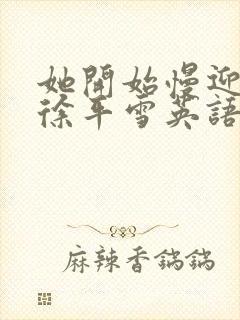 她開始慢迎
徐平雪英語
麻辣香鍋鍋